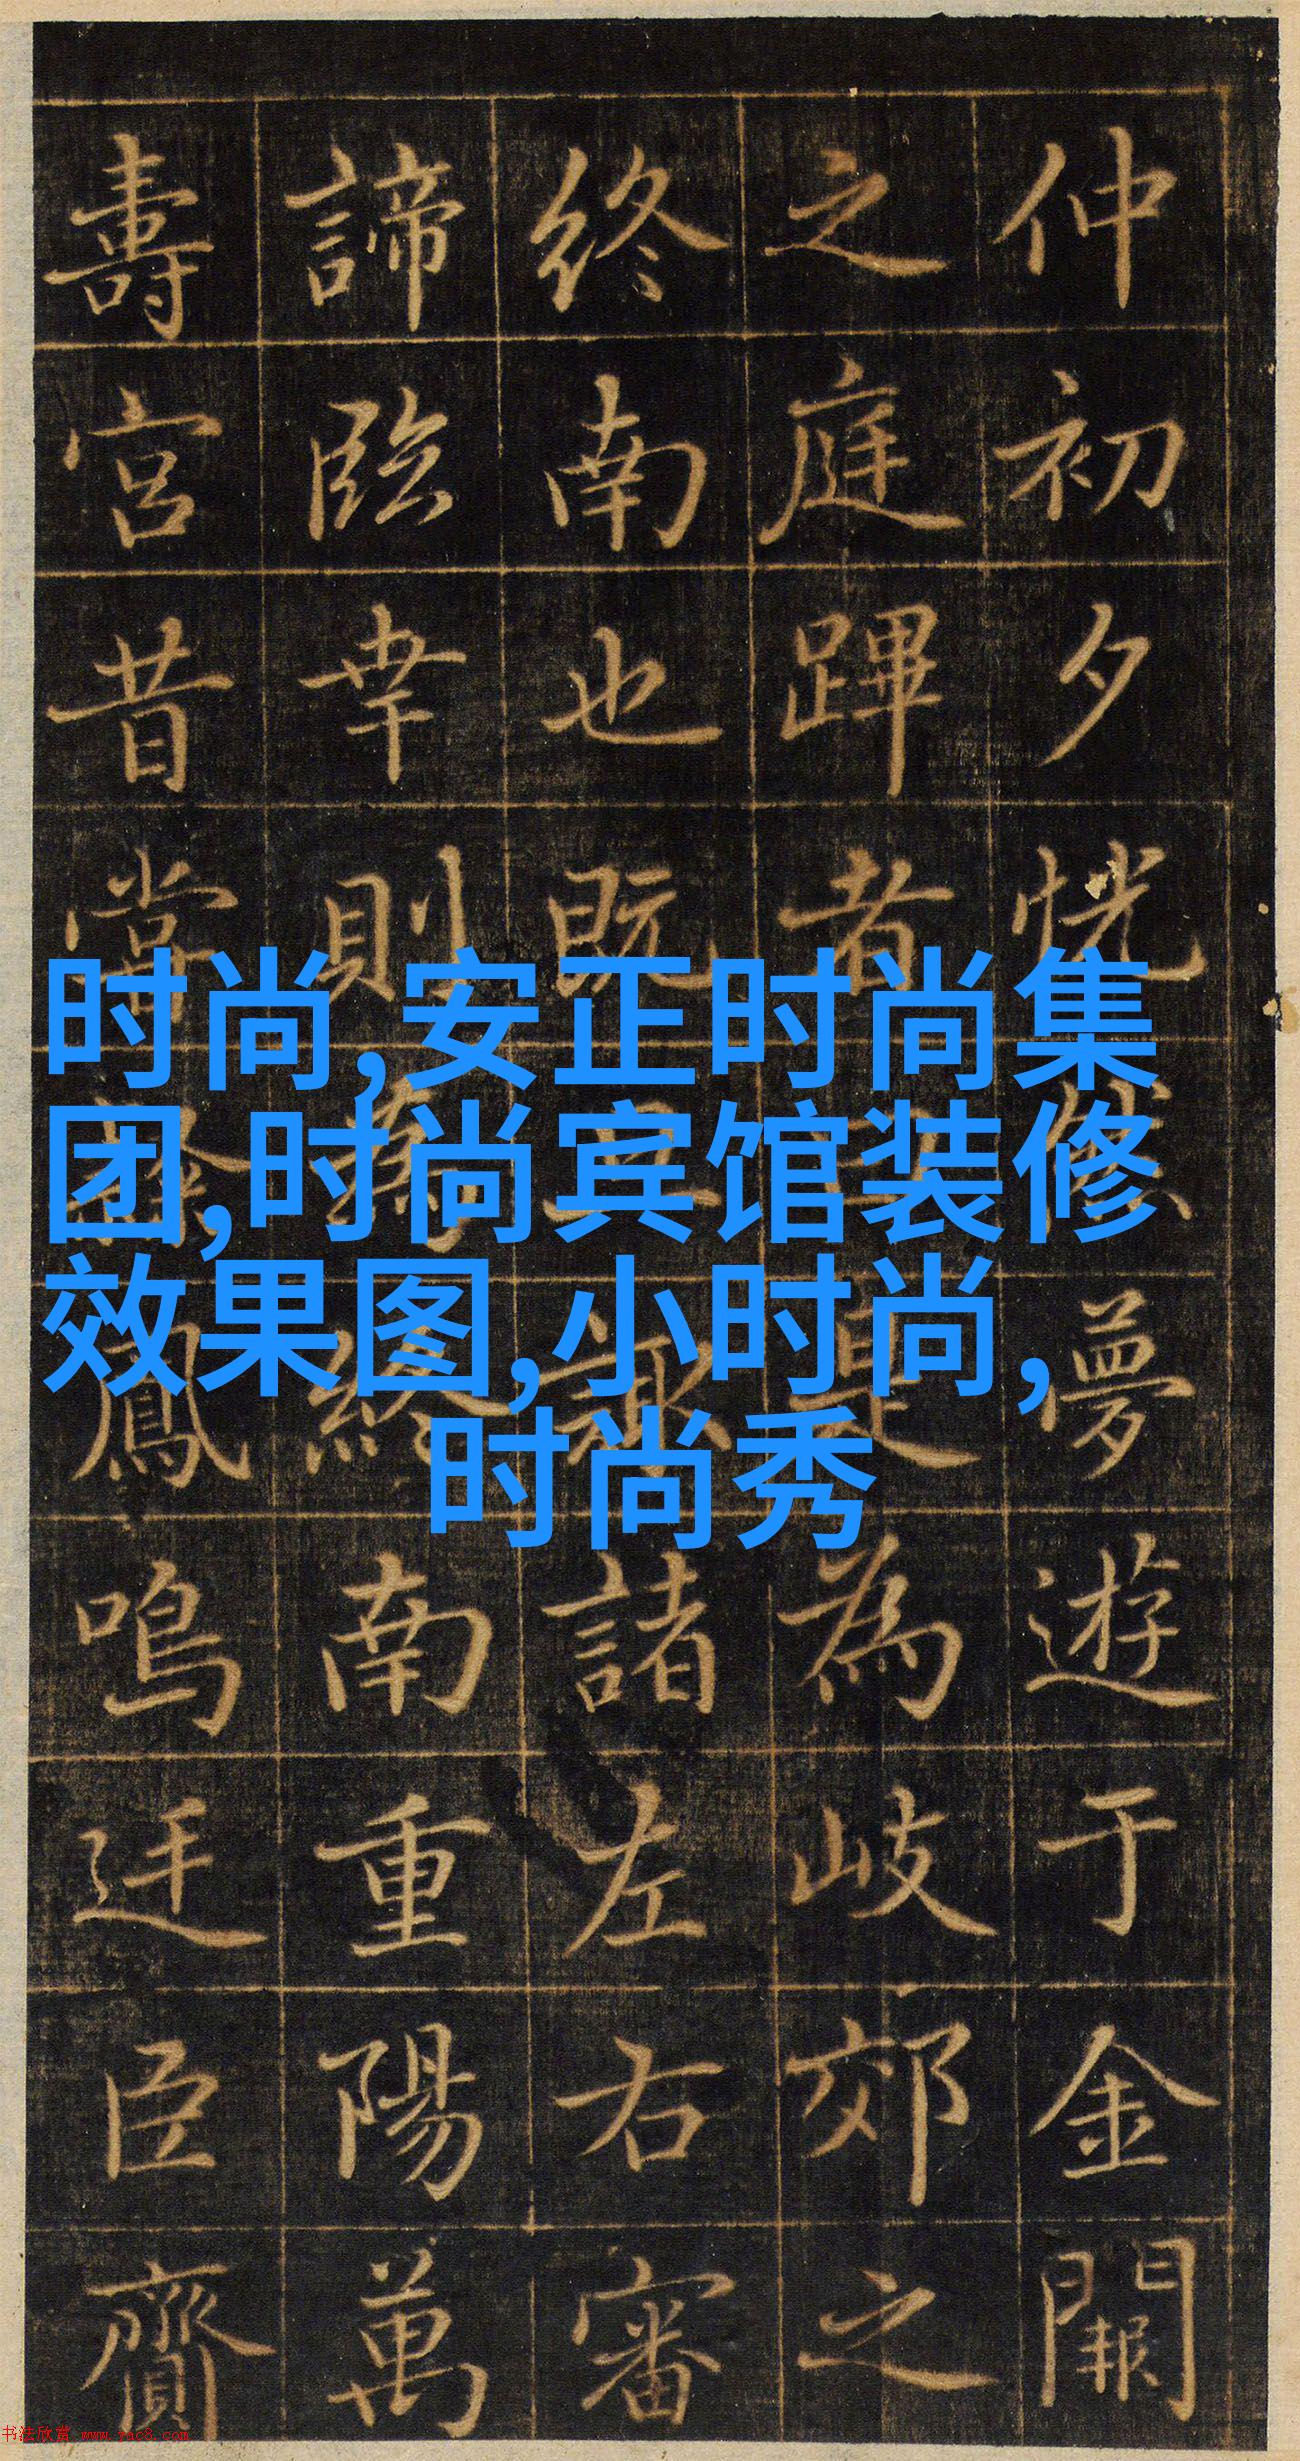 仲初夕恍然夢遊于金闕
之庭蹕者曰是為岐郊之
終南也既旦諏諸左右審
諦臨幸則終南重陽萬
壽宮昔嘗鳳鳴迋臣齎
时尚,安正时尚集
团,时尚宾馆装修
效果图,小时尚,
时尚秀
书法欣赏 www.yac8.com